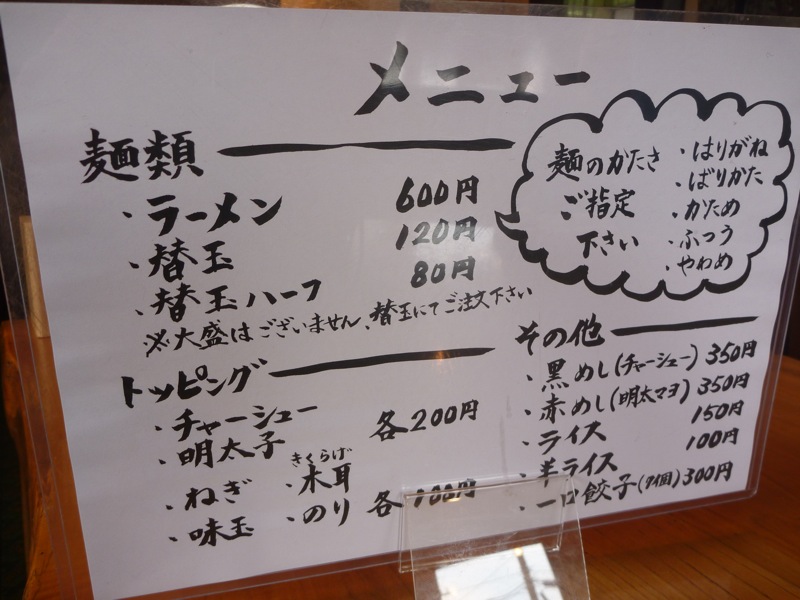 メニュー
麺類
・ラーメン 600円
・替玉 120円
・替玉ハーフ 80円
※大盛はございません、替玉にてご注文下さい
麺のかたさ
ご指定
下さい
・はりがね
・ばりかた
・かため
・ふつう
・やわめ
トッピング
・チャーシュー
・明太子 各200円
・ねぎ
・木耳
きくらげ
・味玉
・のり 各100円
その他
・黒めし(チャーシュー) 350円
・赤めし(明太マヨ) 350円
・ライス 150円
・半ライス 100円
・一口餃子 300円